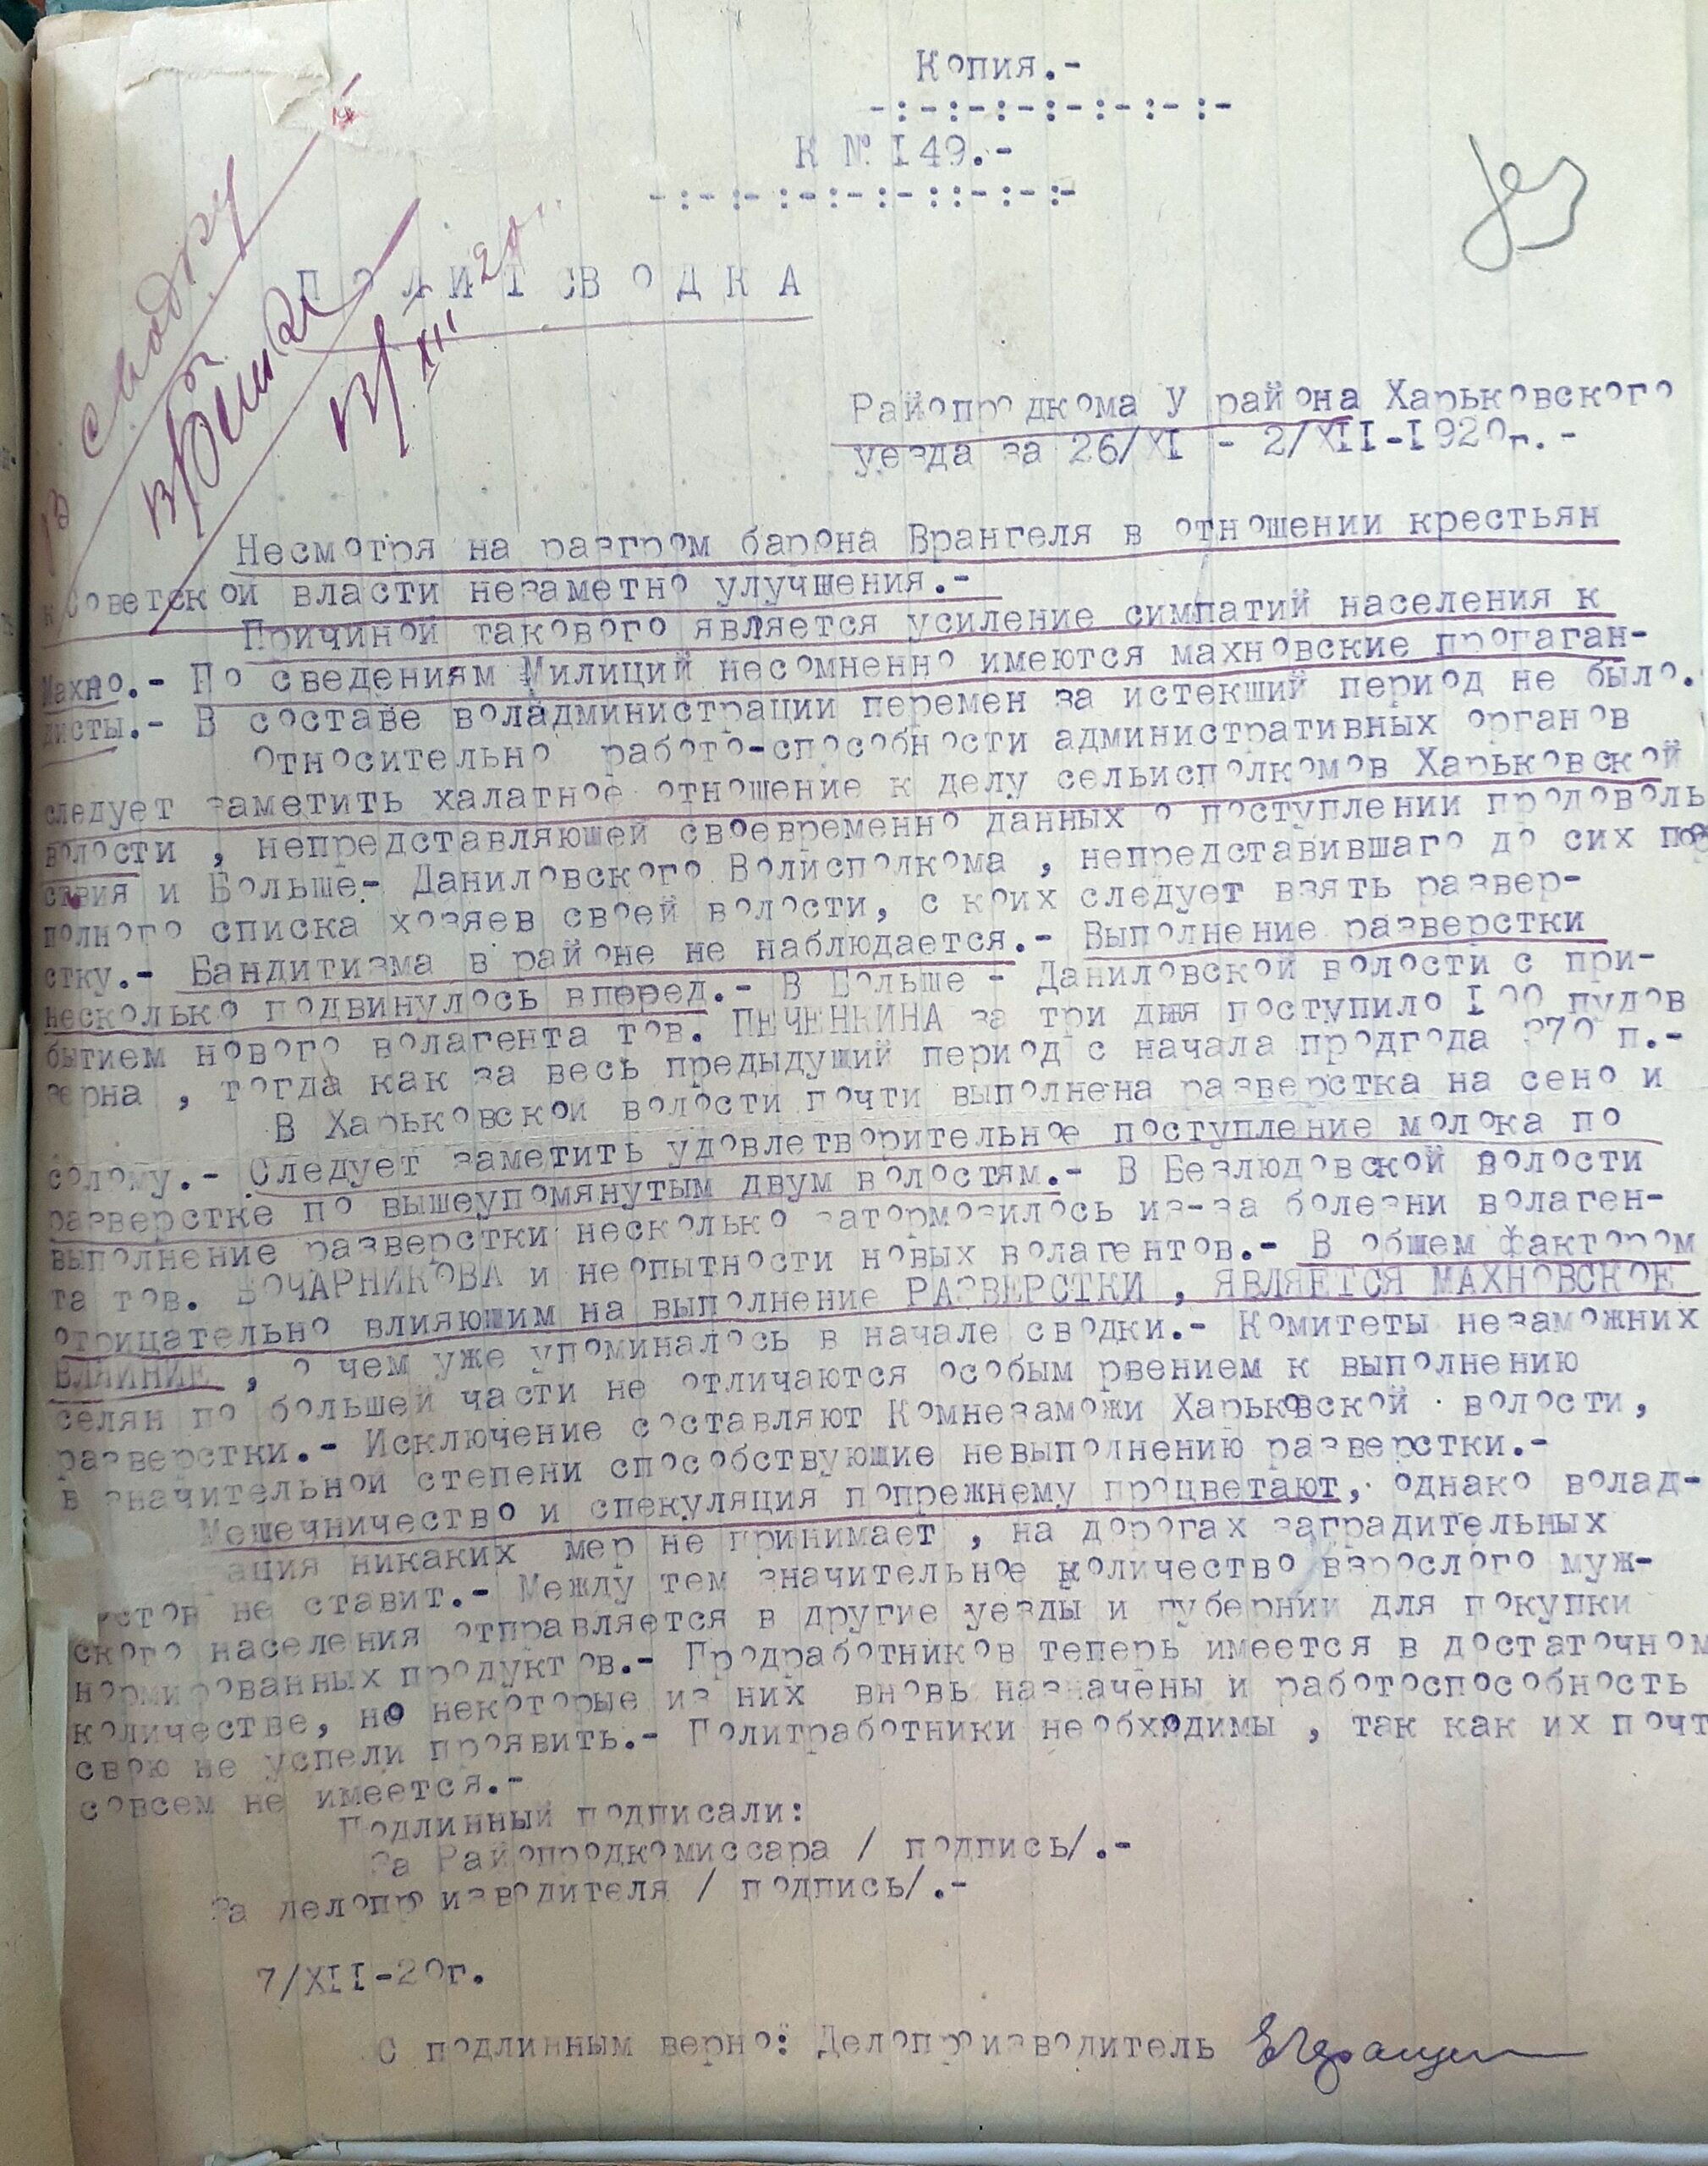 Копия.-
-:-:-:-:-:-:-:-
К № I49.-
-:-:-:-:-:-::-:-:-
ПОЛИТСВОДКА
В сводку
XII 20
Райопродкома У района Харьковского
уезда за 26/XI - 2/XII-I920г.-
Несмотря на разгром барона Врангеля в отношении крестьян
к Советской власти незаметно улучшения.-
Причиной такового является усиление симпатий населения к
Махно.- По сведениям Милиций несомненно имеются махновские пропаган-
дисты.- В составе воладминистрации перемен за истекший период не было.
Относительно работо-способности административных органов
следует заметить халатное отношение к делу сельисполкомов Харьковской
волости , непредставляющей своевременно данных о поступлении продоволь
ствия и Больше- Даниловского Волисполкома , непредставившаго до сих пор
полного списка хозяев своей волости, с коих следует взять развер-
стку.- Бандитизма в районе не наблюдается.- Выполнение разверстки
несколько подвинулось вперед.- В Больше - Даниловской волости с при-
бытием нового волагента тов. ПЕЧЕНКИНА за три дня поступило I00 пудов
зерна , тогда как за весь предыдущий период с начала продгода 370 п.-
В Харьковской волости почти выполнена разверстка на сено и
солому.- Следует заметить удовлетворительное поступление молока по
разверстке по вышеупомянутым двум волостям.- В Безлюдовской волости
выполнение разверстки несколько затормозилось из-за болезни волаген-
та тов. БОЧАРНИКОВА и неопытности новых волагентов.- В общем фактором
отрицательно влияющим на выполнение РАЗВЕРСТКИ , ЯВЛЯЕТСЯ МАХНОВСКОЕ
ВЛЯИНИЕ , о чем уже упоминалось в начале сводки.- Комитеты незаможних
селян по большей части не отличаются особым рвением к выполнению
разверстки.- Исключение составляют Комнезаможи Харьковской волости,
в значительной степени способствующие невыполнению разверстки.-
Мешечничество и спекуляция попрежнему процветают, однако волад-
ация никаких мер не принимает , на дорогах заградительных
стов не ставит.- Между тем значительное количество взрослого муж-
ского населения отправляется в другие уезды и губернии для покупки
нормированных продуктов.- Продработников теперь имеется в достаточном
количестве, но некоторые из них вновь назначены и работоспособность
свою не успели проявить.- Политработники необходимы , так как их почт
совсем не имеется.-
Подлинный подписали:
За Райопродкомиссара / подпись/.-
За делопроизводителя / подпись/.-
7/XII-20г.
С подлинным верно: Делопроизводитель